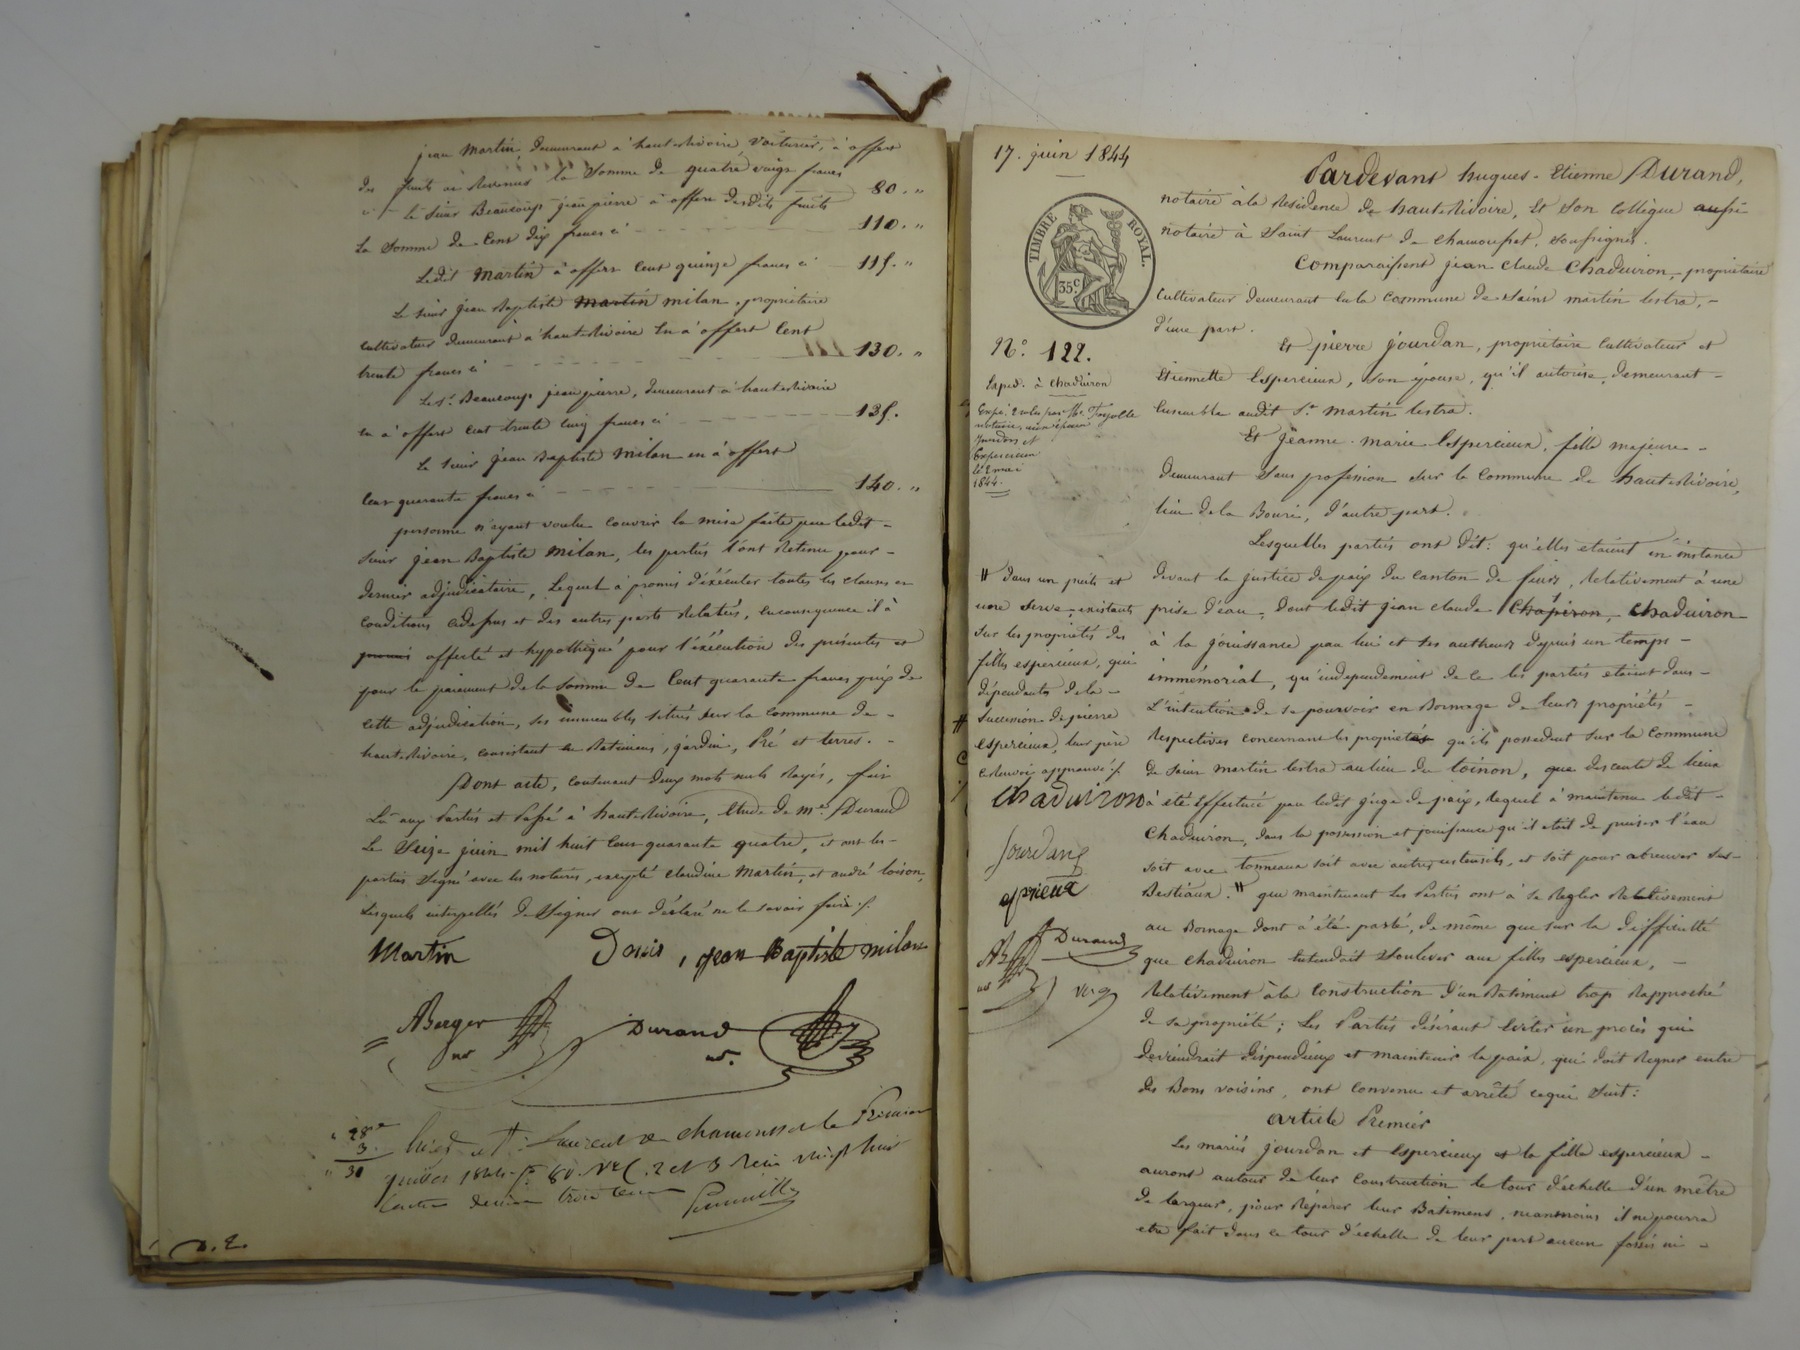 jean Martin, demeurant à hauterivoire, voiturier, à offert
des fruits ou Revenus la Somme de quatre vingt francs 80. "
le sieur Beaucoup jean pierre à offert desdits fruits
la Somme de Cent dix francs ci 110. "
Ledit Martin à offert cent quinze francs ci 115. "
Le sieur jean Baptiste Martin milan, propriétaire
cultivateur demeurant à hauterivoire en à offert Cent
trente francs ci 130. "
Le sr. Beaucoup jean pierre, demeurant à hauterivoire
en à offert cent trente cinq francs ci 135.
Le sieur jean Baptiste Milan en à offert
cent quarante francs ci 140. "
personne n'ayant voulu couvrir la mise faite par ledit
sieur jean Baptiste Milan, les parties l'ont Retenu pour
dernier adjudicataire, Lequel à promis d'éxécuter toutes les clauses et
conditions cidessus et des autres parts Relatées, enconséquence il à
promis affecté et hypothéqué pour l'éxécution des présentes et
pour le paiement de la Somme de Cent quarante francs prix de
cette adjudication, ses immeubles situés sur la commune de
hauterivoire, consistant en Batiment, jardin, Pré et terres.
Dont acte, contenant deux mots nuls Rayés, fait
Lû aux Parties et Passé à hauterivoire, étude de me. Durand
Le Seize juin mil huit cent quarante quatre, et ont les
parties signé avec les notaires, excepté claudine Martin, et andré loison,
Lesquels interpellés de signer ont déclaré ne le savoir faire ./.
Martin jean Baptiste milan
ABerger Durand
nre nre.
28
3
31
Laurent de chamousset le Premier
juillet 1844 fo 80 Vo C. 2 et 3 Reçu vingt huit
centimes trois cent
D. 2.
17. juin 1844
Pardevant hugues-Etienne Durand,
notaire à la Résidence de hauterivoire, Et Son Collègue aussi
notaire à Saint Laurent de chamousset, soussignés.
TIMBRE ROYAL.
35 c
Comparaissent jean claude Chaduiron, propriétaire
cultivateur demeurant en la Commune de Saint martin lestra,
d'une part.
No. 122.
Et pierre jourdan, propriétaire Cultivateur et
Exped. à chaduiron
Etiennette Espercieux, son épouse, qu'il autorise, demeurant
Ensemble audit St. martin lestra.
notaire,
jourdan et
Espercieux
le 2 mai
1844.
Et jeanne-marie Espercieux, fille majeure
demeurant Sans profession sur la Commune de hauterivoire,
lieu dela Bourie, d'autre part.
Lesquelles parties ont dit: qu'elles étaient en instance
devant la justice de paix du canton de feurs, Relativement à une
prise d'eau, dont ledit jean claude Chapiron, Chaduiron
à la jouissance par lui et ses autheurs depuis un temps
immémorial, qu'indépendement de ce les parties étaient dans
L'intention de se pourvoir en Bornage de leurs propriétés
Respectives concernant les propriétés qu'ils possèdent sur la Commune
de Saint martin lestra au lieu du toinon, que descente de lieux
à été Effectuée par ledit juge de paix, lequel à maintenu ledit
Chaduiron, dans la possession et jouissance qu'il était de puiser l'eau
soit avec tonneaux soit avec autres ustensils, et soit pour abreuver ses
Bestiaux. # que maintenant Les Parties ont à se Regler Relativement
au Bornage dont à été parlé, de même que sur la difficulté
que chaduiron entendait soulever aux filles espercieux,
Relativement à la Construction d'un Batiment trop Rapproché
de sa propriété; Les Parties désirant Eviter un procès qui
deviendrait dispendieux et maintenir la paix, qui doit Régner entre
des Bons voisins, ont Convenu et arrêté cequi suit:
# dans un puits et
une serve, existants
sur les propriétés des
filles espercieux, qui
dépendants dela
Succession de pierre
espercieux, leur père
Renvoi approuvé ./.
Chaduiron
Jourdan
esprieux
Durand
AB
article Premier
Les mariés jourdan et Espercieux et la fille espercieux
auront autour de leur Construction le tour d'échelle d'un mètre
de largeur, pour Réparer leur Batiment, néanmoins il ne pourra
etre fait dans ce tour d'échelle de leur part aucun fossés ni